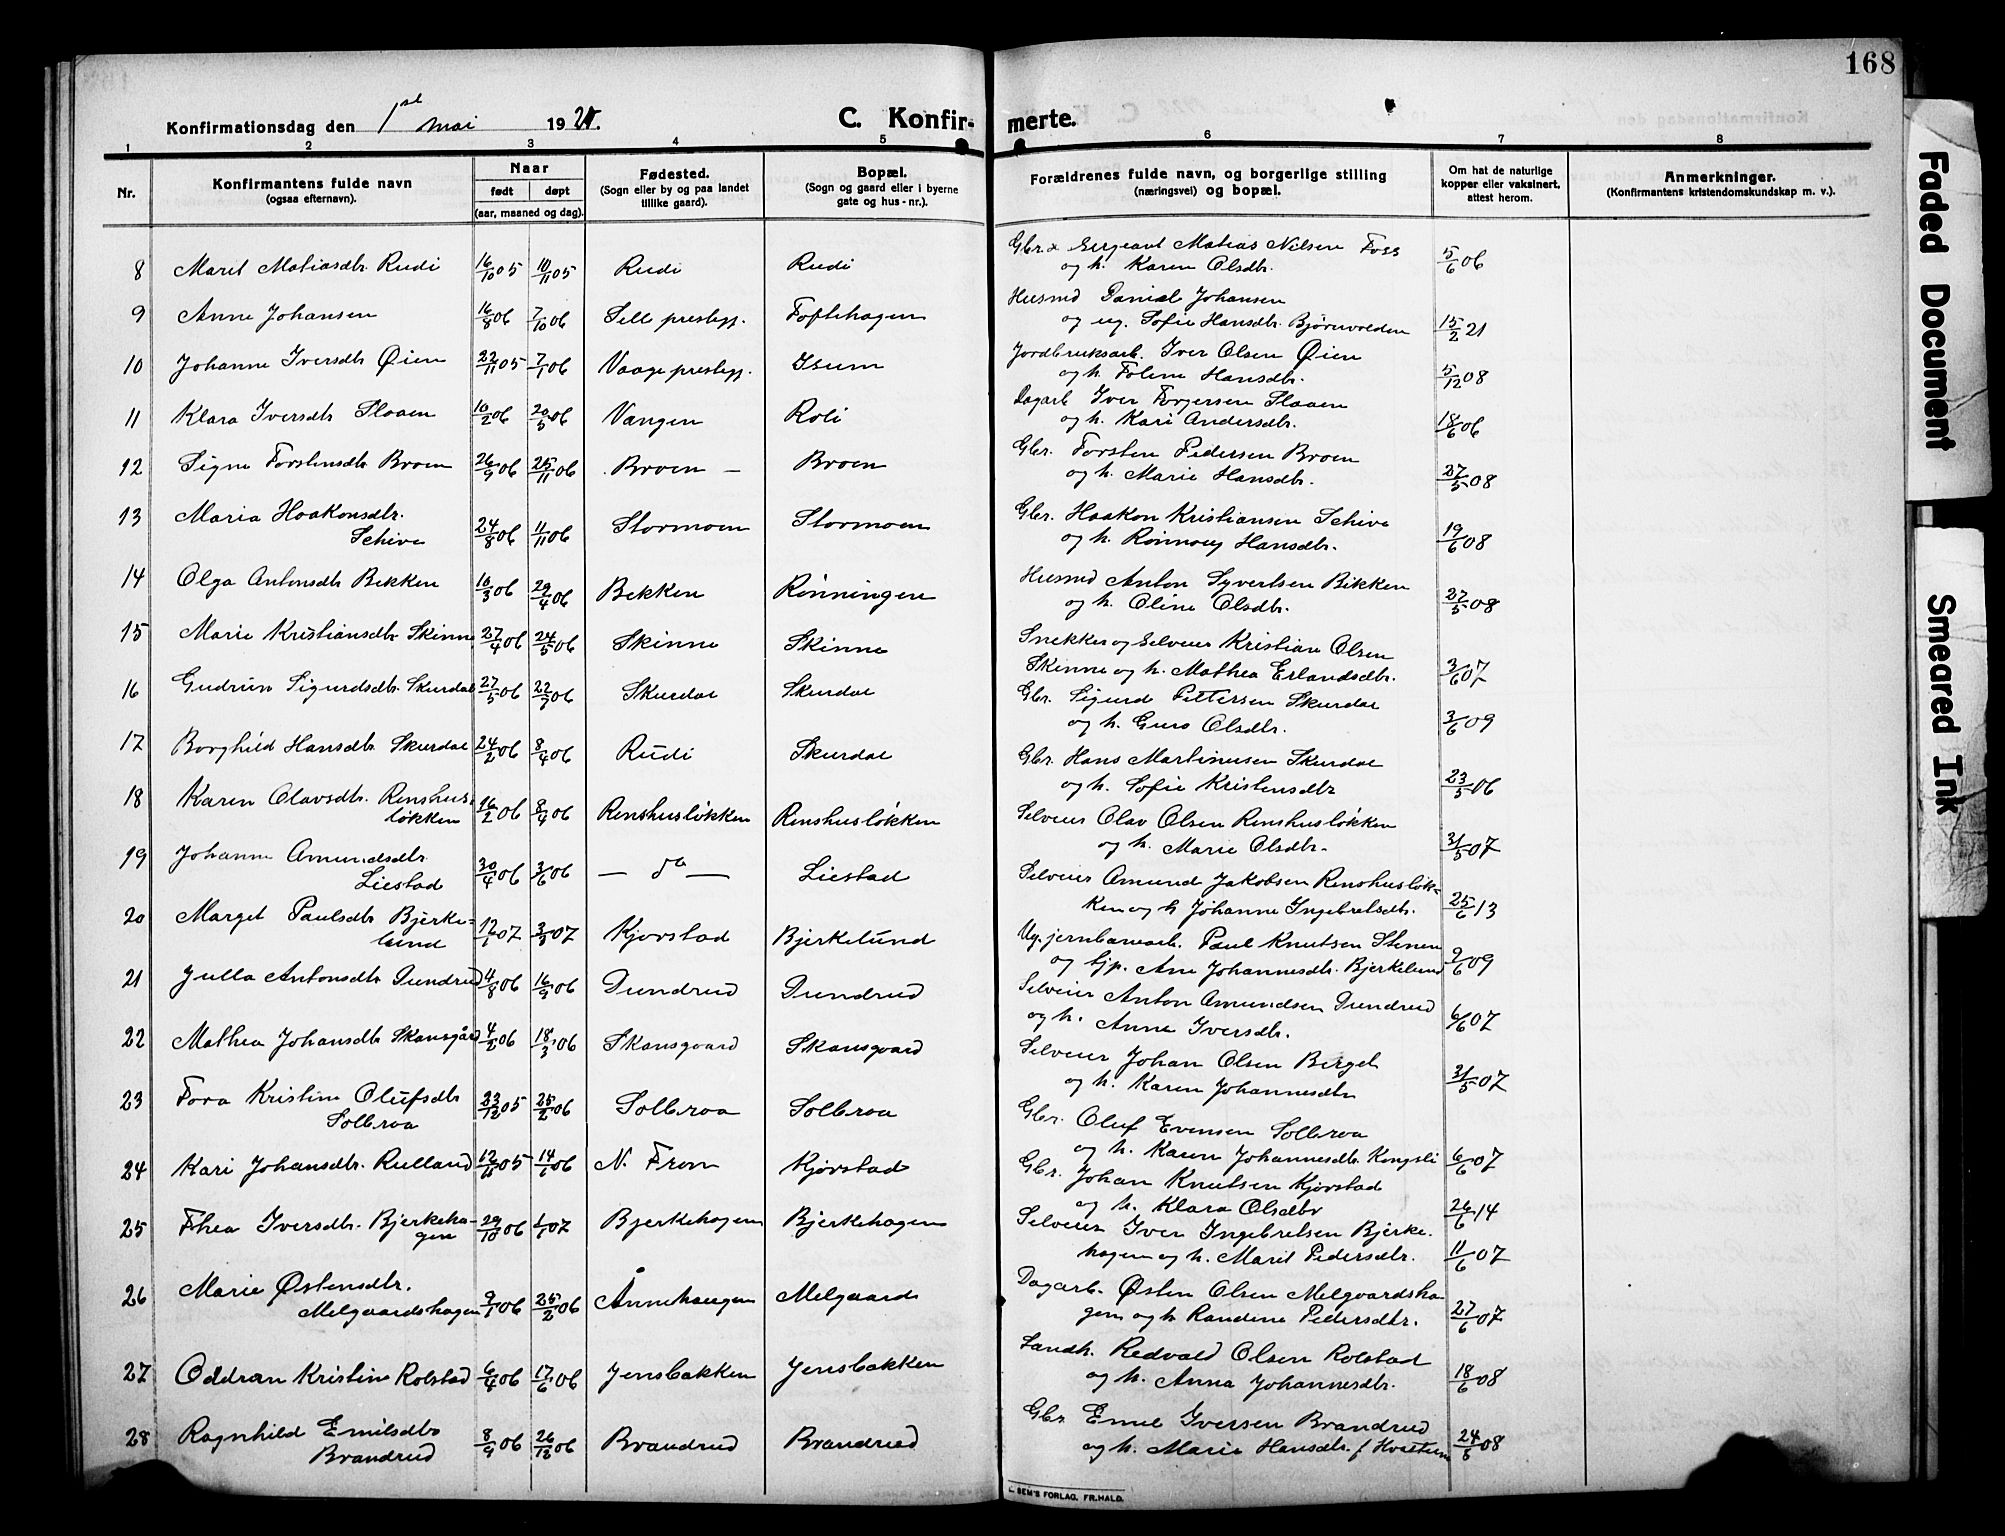 168
Konfirmationsdag den 1st mai 1921.
C. Konfirmerte.
1 2 3 4 5 6 7 8
Nr.
Konfirmantens fulde navn
(ogsaa efternavn).
Naar
født døpt
(aar, maaned og dag).
Fødested.
(Sogn eller by og paa landet
tillike gaard).
Bopæl.
(Sogn og gaard eller i byerne
gate og hus-nr.).
Forældrenes fulde navn, og borgerlige stilling
(næringsvei) og bopæl.
Om hat de naturlige
kopper eller vaksinert,
attest herom.
Anmerkninger.
(Konfirmantens kristendomskundskap m. v.).
8 Marit Matiasdtr. Rudi 16/10 05 10/11 05 Rudi Rudi Gbr. & Sergeant Matias Nilsen Foss
og h. Karen Olsdtr. 5/6 06
9 Anne Johansen 16/8 06 7/10 06 Sell prestegj. Toftehagen Husmd Daniel Johansen
og ug. Sofie Hansdtr. Bjørnvolden 15/2 21
10 Johanne Iversdtr Øien 22/11 05 7/1 06 Vaage prestegj. Isum Jordbruksarb. Iver Olsen Øien
og h. Toline Hansdtr. 5/12 08
11 Klara Iversdtr Slaaen 10/2 06 20/5 06 Vangen Roli Dagarb Iver Torgersen Slaaen
og h. Kari Andersdtr. 18/6 06
12 Signe Torstensdtr Broen 26/9 06 25/11 06 Broen — Broen Gbr. Torsten Pedersen Broen
og h. Marie Hansdtr. 27/5 08
13 Maria Haakonsdtr.
Schive 24/8 06 11/11 06 Stormoen Stormoen Gbr. Haakon Kristiansen Schive
og h. Rønnaug Hansdtr. 19/6 08
14 Olga Antonsdtr Bekken 10/3 06 29/4 06 Bekken Rønningen Husmd Anton Syvertsen Bekken
og h. Oline Olsdtr. 27/5 08
15 Marie Kristiansdtr Skinne 27/4 06 24/5 06 Skinne Skinne Snekker og selveier Kristian Olsen
Skinne og h. Mathea Erlandsdtr. 3/6 07
16 Gudrun Sigurdsdtr. Skurdal 27/5 06 22/7 06 Skurdal Skurdal Gbr. Sigurd Pettersen Skurdal
og h. Guro Olsdtr. 3/6 09
17 Borghild Hansdtr Skurdal 24/2 06 8/4 06 Rudi Skurdal Gbr. Hans Martinusen Skurdal
og h. Sofie Kristensdtr 23/5 06
18 Karen Olavsdtr. Renshus-
løkken 16/2 06 8/4 06 Renshusløkken Renshusløkken Selveier Olav Olsen Renshusløkken
og h. Marie Olsdtr. 31/5 07
19 Johanne Amundsdtr.
Liestad 30/4 06 3/6 06 — do — Liestad Selveier Amund Jakobsen Renshusløk-
ken og h Johanne Ingebretsdtr. 25/6 13
20 Marget Paulsdtr Bjerke-
lund 17/1 07 3/3 07 Kjorstad Bjerkelund Ug. jernbanearb. Paul Knutsen Stenen
og tjp. Ane Johannesdtr. Bjerkelund 9/6 09
21 Julla Antonsdtr Dundrud 4/8 06 16/9 06 Dundrud Dundrud Selveier Anton Amundsen Dundrud
og h. Anne Iversdtr. 6/6 07
22 Mathea Johansdtr Skansgård 4/2 06 18/3 06 Skansgaard Skansgaard Selveier Johan Olsen Berget
og h. Karen Johannesdtr 31/5 07
23 Tora Kristine Olufsdtr
Solbraa 23/12 05 25/2 06 Solbraa Solbraa Gbr. Oluf Evensen Solbraa
og h. Karen Johannesdtr. Kongsli 6/6 07
24 Kari Johansdtr. Rulland 12/11 05 14/1 06 N. Fron Kjørstad Gbr. Johan Knutsen Kjørstad
og h. Klara Olsdtr 26/6 14
25 Thea Iversdtr. Bjerkeha-
gen 29/10 06 1/1 07 Bjerkehagen Bjerkehagen Selveier Iver Ingebretsen Bjerke-
hagen og h. Marit Pedersdtr. 11/6 07
26 Marie Østensdtr.
Melgaardshagen 9/1 06 25/2 06 Ånnehaugen Melgaard Dagarb. Østen Olsen Melgaardsha
gen og h Randine Pedersdtr. 27/6 07
27 Oddran Kristine Rolstad 6/4 06 17/6 06 Jensbakken Jensbakken Landh. Redvald Olsen Rolstad
og h. Anna Johannesdtr. 18/6 08
28 Ragnhild Emilsdtr
Brandrud 8/9 06 26/12 06 Brandrud Brandrud Gbr Emil Iversen Brandrud
og h. Marie Hansdtr. f Hvattum 24/5 08
SEM'S FORLAG, FR.HALD.
Faded Document
Smeared Ink